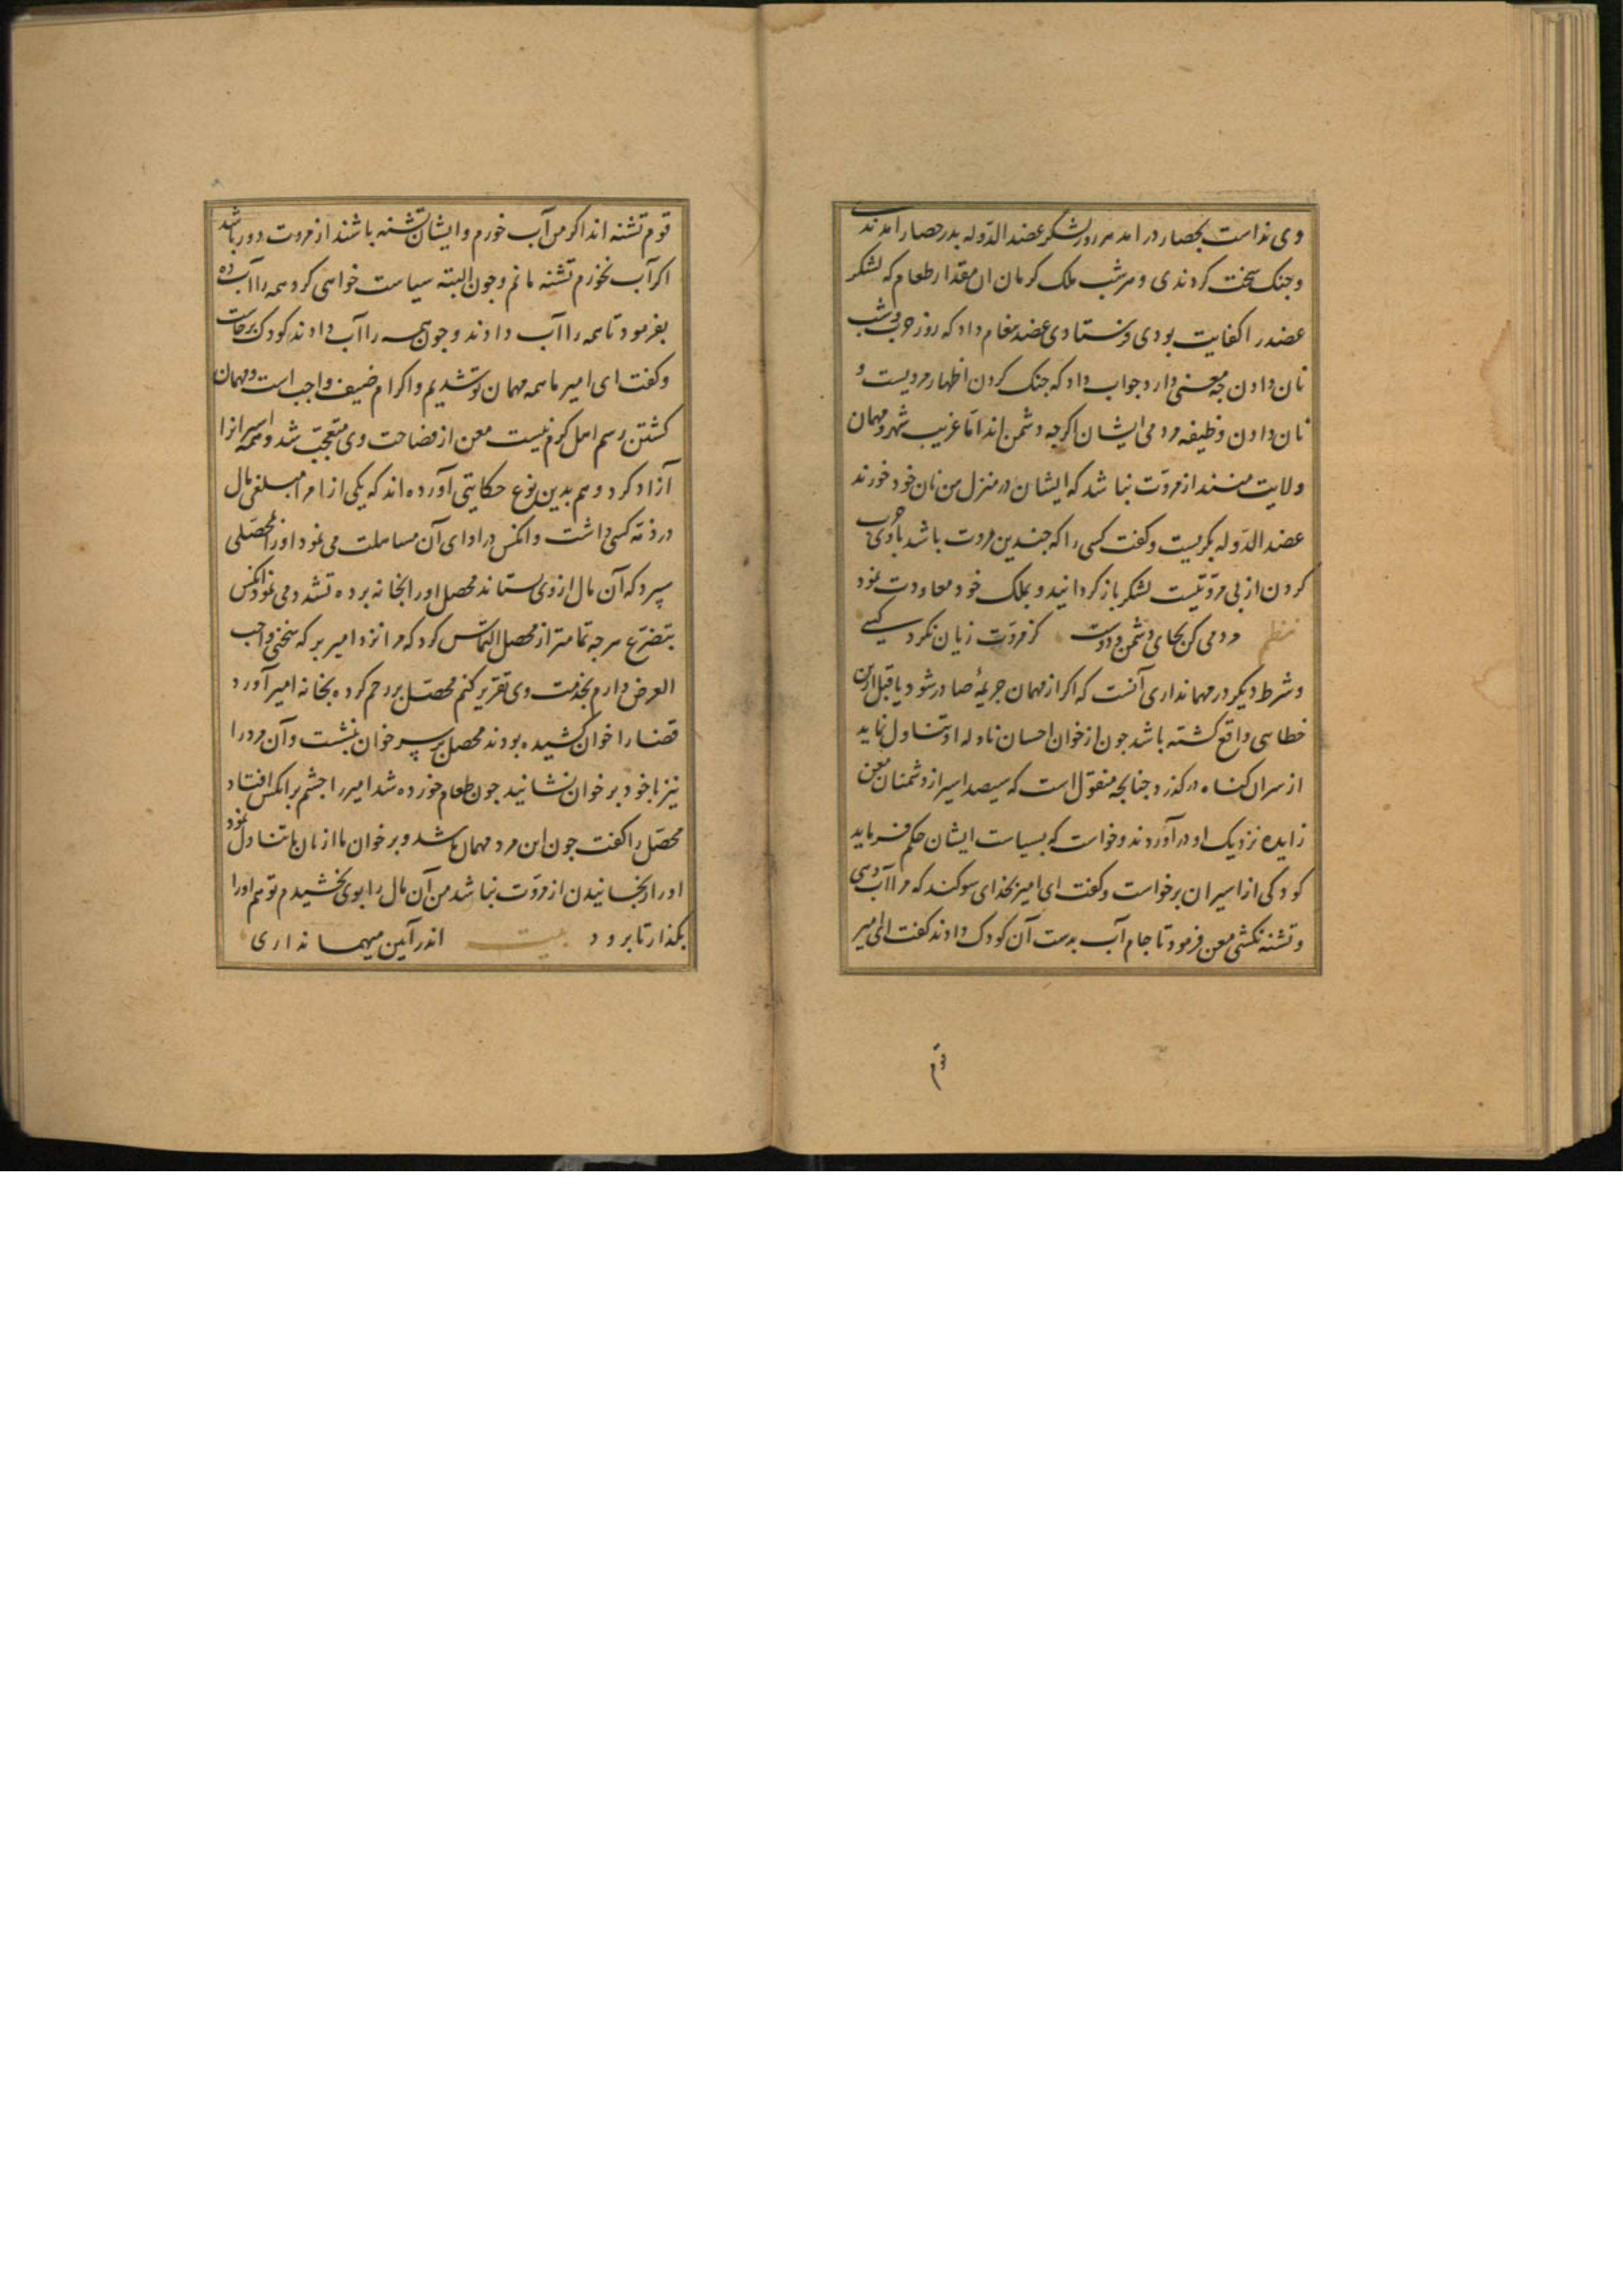 وی نداست بحصار در امد هر روز لشکر عضد الدّوله بدر حصار آمدندی
و جنک سخت کردندی و هر شب ملک کرمان ان مقدار طعام که لشکر
عضد را کفایت بودی فرستادی عضد پیغام داد که روز حرب و شب
نان دادن چه معنی دارد جواب داد که جنک کردن اظهار مردیست و
نان دادن وظیفه مردمی ایشان اکرچه دشمن اند امّا غریب شهر و مهمان
ولایت منند از مروّت نباشد که ایشان در منزل من نان خود خورند
عضد الدّوله بکریست و کفت کسی را که چندین مروت باشد با وی حرب
کردن از بی مروّتیست لشکر باز کردانید و بملک خود معاودت نمود
نظم مردمی کن بجای دشمن و دوست کز مروّت زیان نکرد کسی
و شرط دیکر در مهمانداری آنست که اکر از مهمان جریمهٔ صادر شود یا قبل ازین
خطایی واقع کشته باشد جون از خوان احسان نواله او تناول نماید
از سران کناه درکذرد جنانجه منقول است که سیصد اسیر از دشمنان معن
زایده نزدیک او درآوردند و خواست که بسیاست ایشان حکم فرماید
کودکی از اسیران برخواست و کفت ای امیر بخدای سوکند که مرا آب دهی
و تشنه نکشی معن فرمود تا جام آب بدست آن کودک دادند کفت ای امیر
قوم
قوم تشنه اند اکر من آب خورم و ایشان تشنه باشند از مروت دور باشد
اکر آب نخورم تشنه مانم و جون البته سیاست خواهی کرد همه را آب ده
بفرمود تا همه را آب دادند و جون همه را آب دادند کودک برخاست
و کفت ای امیر ما همه مهمان تو شدیم و اکرام ضیف واجب است و مهمان
کشتن رسم اهل کرم نیست معن از فصاحت وی متعجّب شد و همه اسیرانرا
آزاد کرد و هم بدین نوع حکایتی آورده اند که یکی از امرا مبلغی مال
در ذمّه کسی داشت و آنکس در ادای آن مساهلت می نمود او را بمحصّلی
سپرد که آن مال از وی ستاند محصل او را بخانه برده تشدد می نمود آنکس
بتضرّع هرچه تمامتر از محصل التماس کرد که مرا نزد امیر بر که سخنی واجب
العرض دارم بخدمت وی تقریر کنم محصّل بر رحم کرده بخانه امیر آورد
قضا را خوان کشیده بودند محصل بر سر خوان بنشست و آن مرد را
نیز با خود بر خوان نشانید جون طعام خورده شد امیر را جشم بر آنکس افتاد
محصّل را کفت جون این مرد مهمان ما شد و بر خوان ما از نان ما تناول نمود
او را رنجانیدن از مروّت نباشد من آن مال را بوی بخشیدم تو هم او را
بکذار تا برود بیت اندر آیین میهمانداری